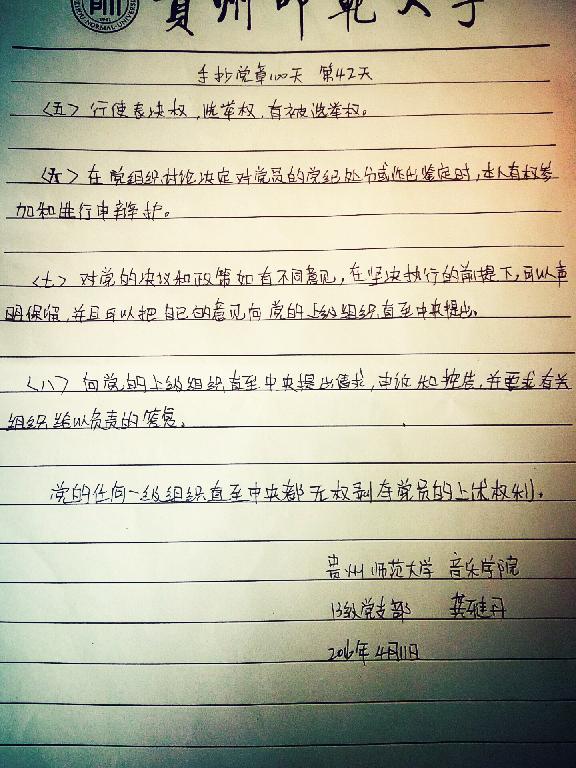 貴州師範大学
GUIZHOU·NORMAL·UNIVERSITY
手抄党章100天 第42天
〈五〉行使表决权,选举权,有被选举权。
〈六〉在党组织讨论决定对党员的党纪处分或作出鉴定时,本人有权参
加和进行申辩护。
〈七〉对党的决议和政策如有不同意见,在坚决执行的前提下,可以声
明保留,并且可以把自己的意见向党的上级组织直至中央提出。
〈八〉向党的上级组织直至中央提出请求,申诉和控告,并要求有关
组织给以负责的答复。
党的任何一级组织直至中央都无权剥夺党员的上述权利。
贵州师范大学 音乐学院
13级党支部 龚雅丹
2016年4月11日